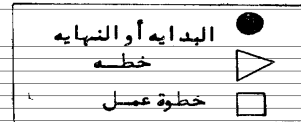 البدايه أو النهايه
خطه
خطوة عمل